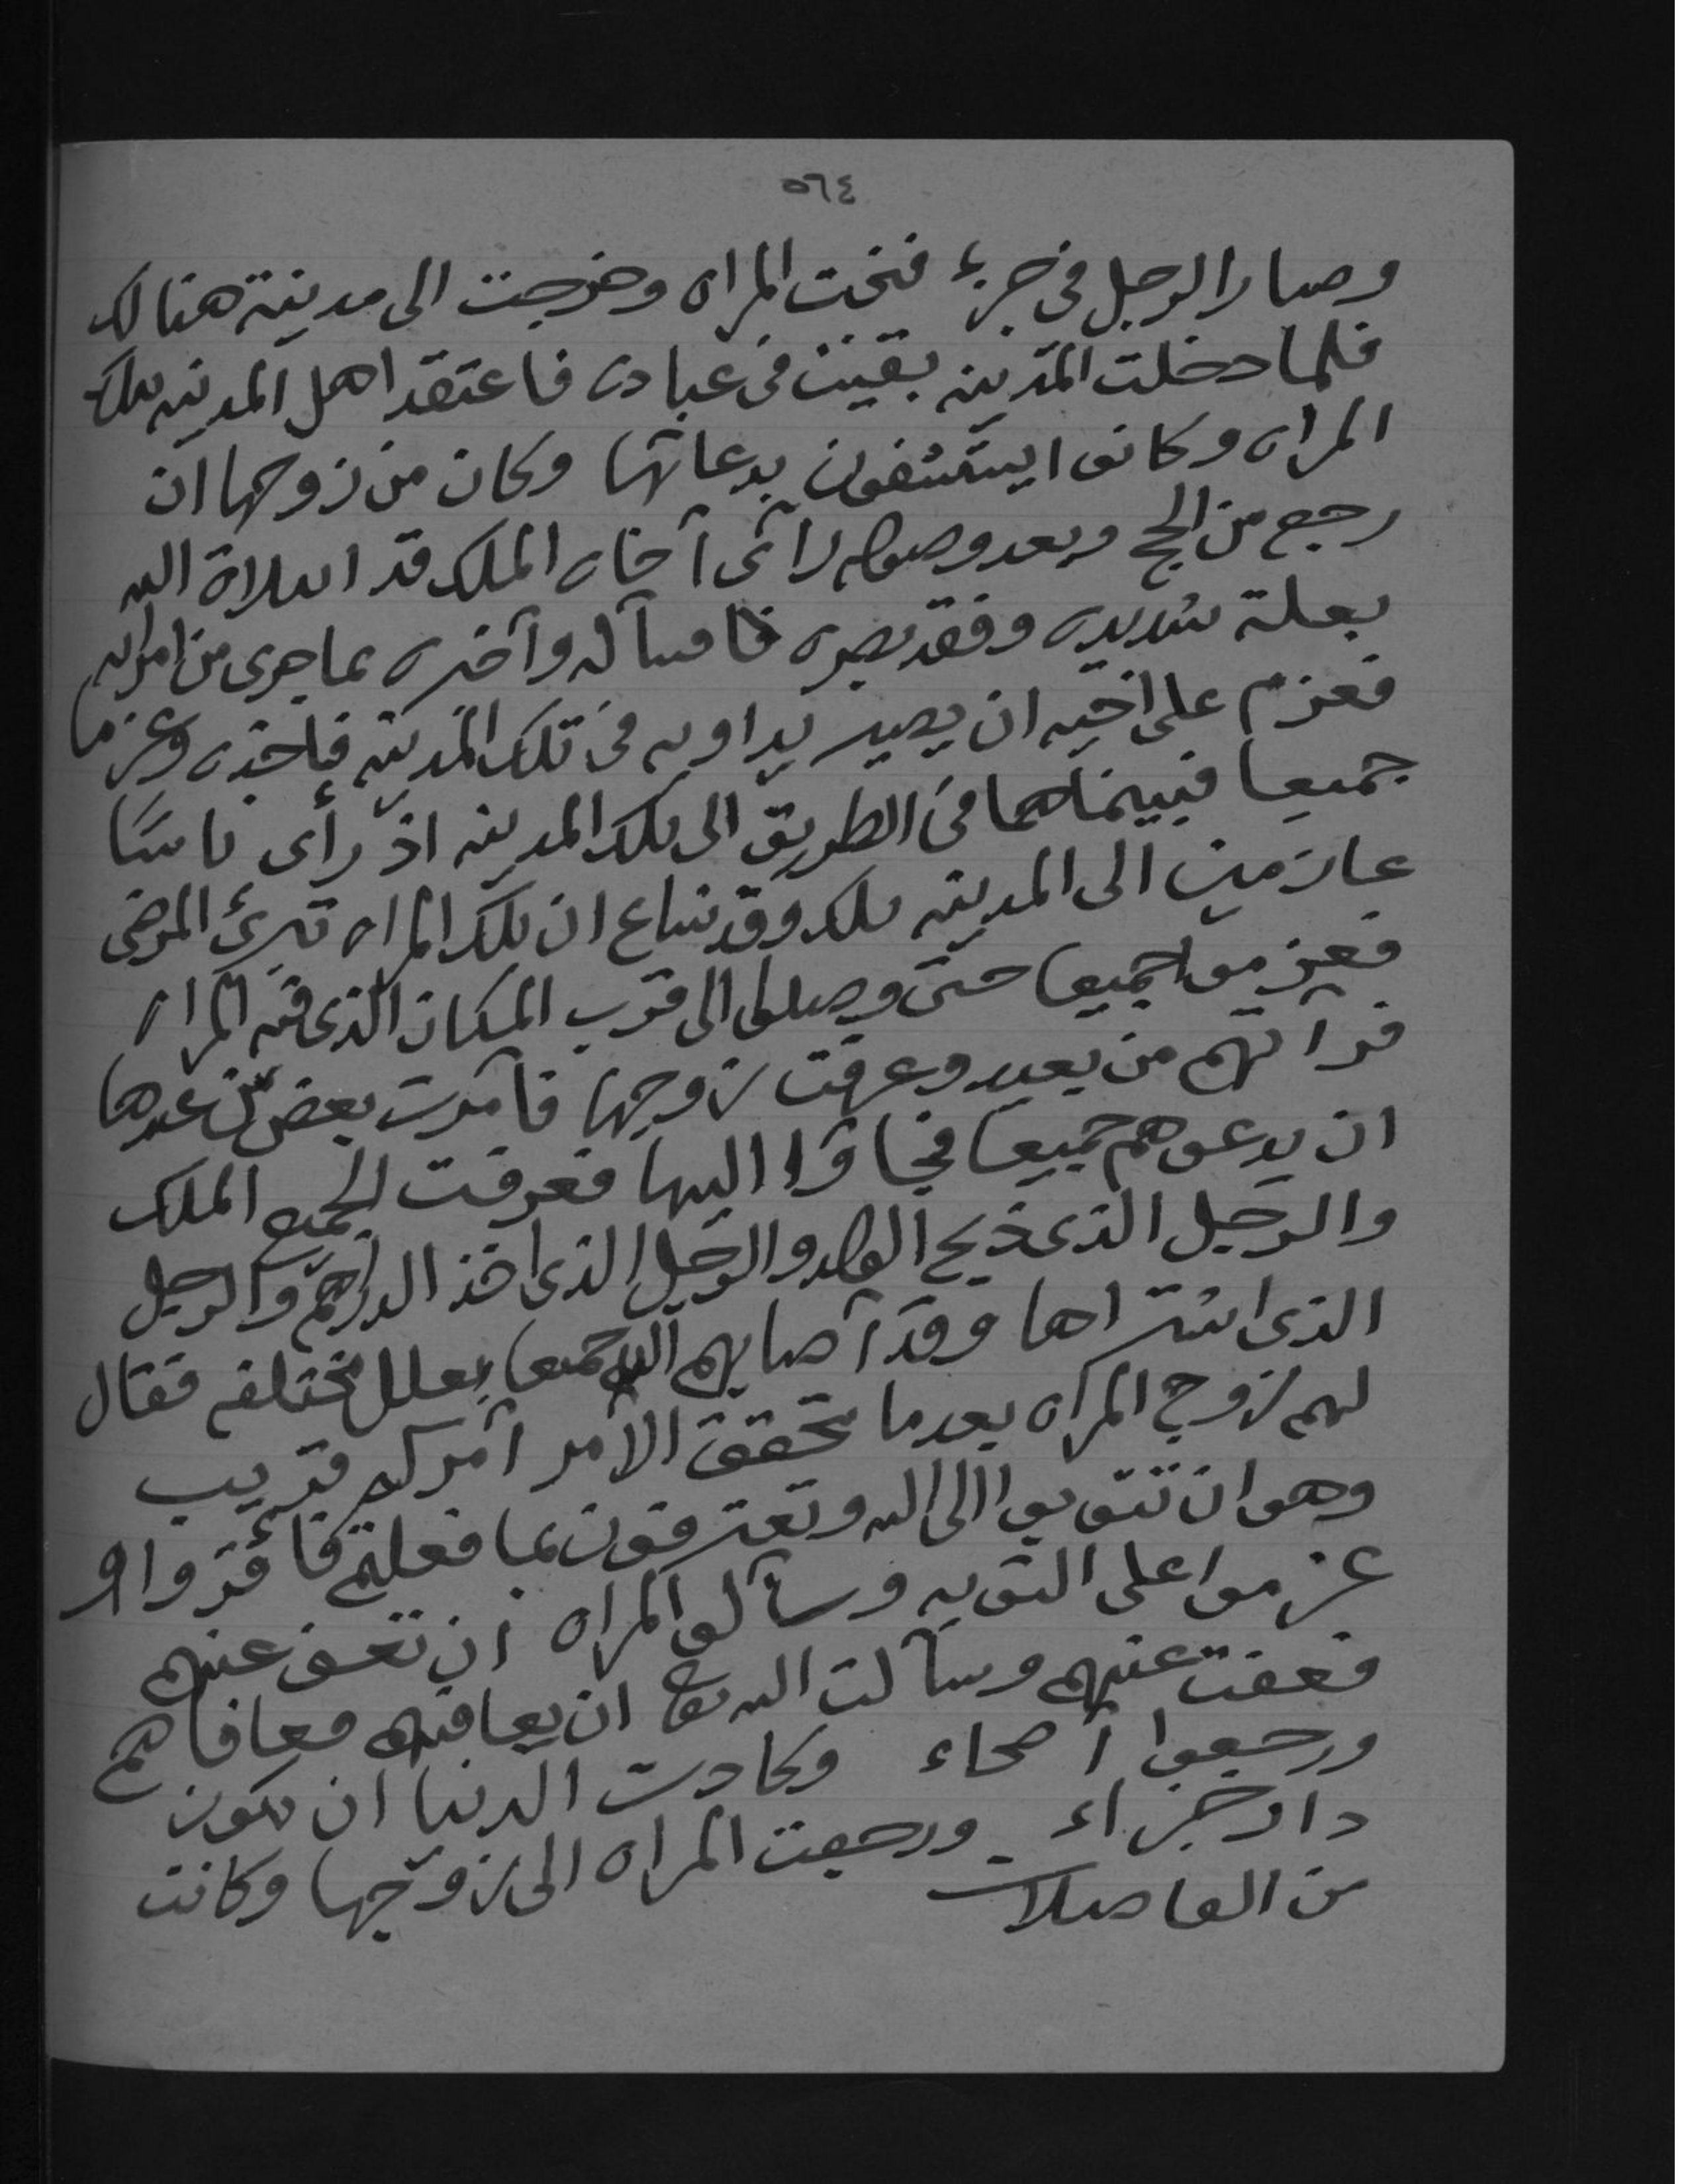 ٥٦٤
وصار الرجل في جزء فنجت المراه وخرجت الى مدينة هنالك
فلما دخلت المدينه بقيت في عباده فاعتقد اهل المدينه بتلك
المراه وكانوا يستشفون بدعائها وكان من زوجها ان
رجع من الحج وبعد وصوله رأى أخاه الملك قد ابتلاه الله
بعلة شديده وفقد بصره فسأله وأخبره بما جرى من امرأته
فعزم على اخيه ان يصير يداويه في تلك المدينه فأخذه وعزما
جميعا فبينما هما في الطريق الى تلك المدينه اذ رأى ناسًا
عازمين الى المدينه تلك وقد شاع ان تلك المراه تبرئ المرضى
فعزموا جميعا حتى وصلوا الى قرب المكان الذي فيه المراه
فرأتهم من بعيد وعرفت زوجها فأمرت بعض من عندها
ان يدعوهم جميعا فجاؤا اليها فعرفت الجميع الملك
والرجل الذي ذبح الولد والرجل الذي اخذ الدراهم والرجل
الذي اشتراها وقد أصابهم الله جميعا بعلل مختلفه فقال
لهم زوج المرأه بعدما تحقق الأمر أمركم قريب
وهو ان تتوبوا الى الله وتعترفون بما فعلتم فأقروا و
عزموا على التوبه وسألوا المراه ان تعفو عنهم
فعفت عنهم وسألت الله تعالى ان يعافيهم فعافاهم
ورجعوا أصحاء وكادت الدنيا ان تكون
دار جزاء ورجعت المراه الى زوجها وكانت
من الفاضلات